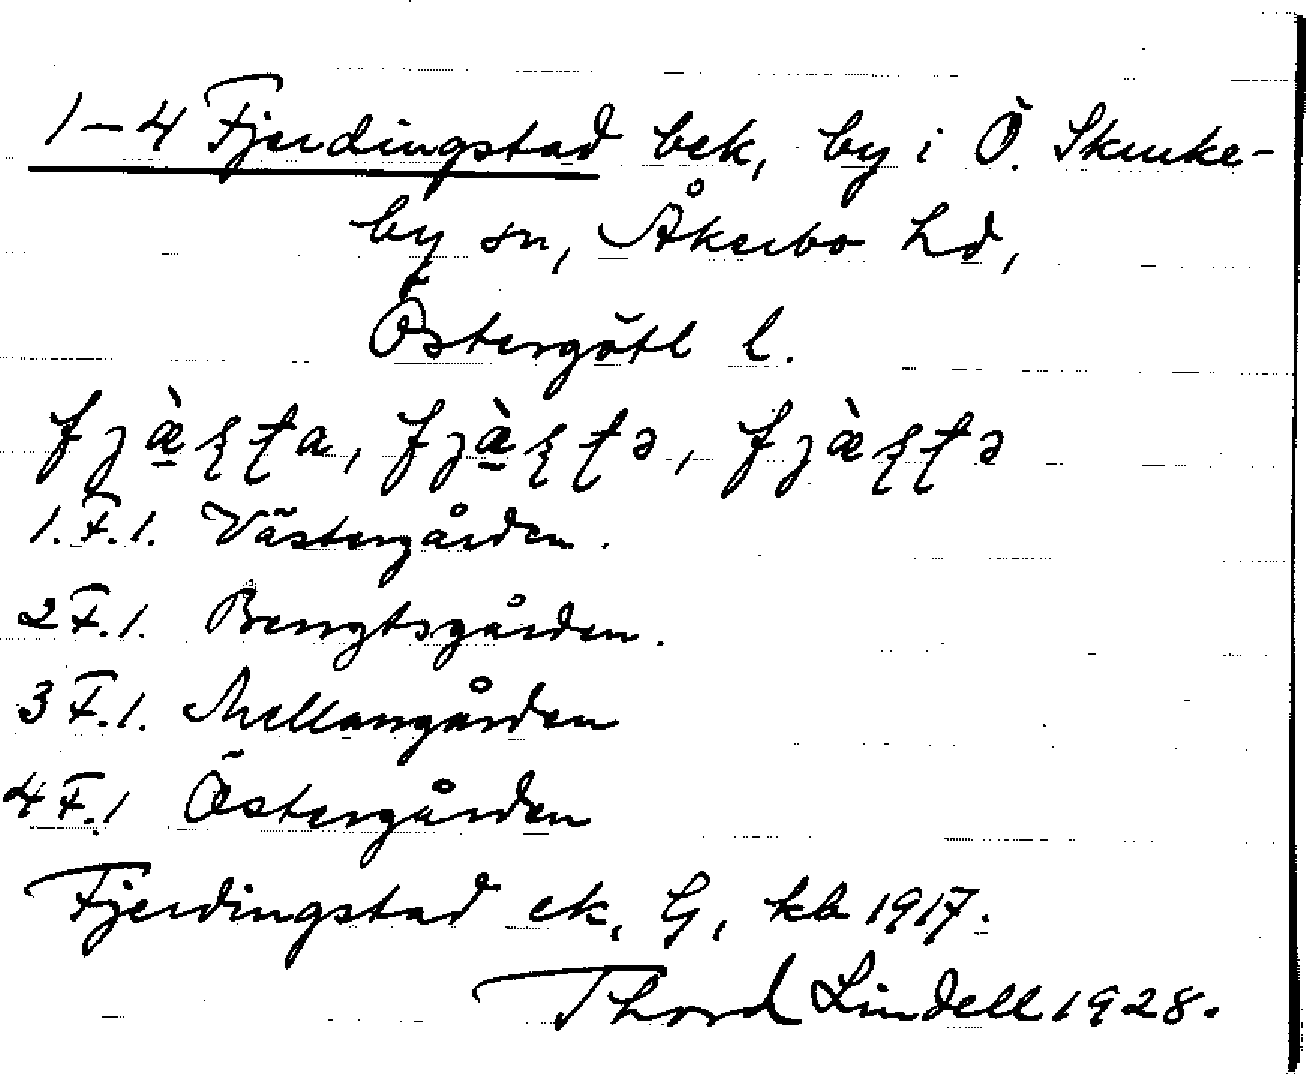 1-4 Fjerdingstad bek, by i Ö. Skruke-
by sn, Åkerbo hd,
Östergötl l.
fjæ̱̀ʂʈa, fjæ̱̀ʂʈə, fjæ̀ʂʈə
1.F.1. Västergården.
2 F.1. Bengtsgården.
3 F.1. Mellangården
4 F.1 Östergården
Fjerdingstad ek, G, kb 1917.
Thord Lindell 1928.